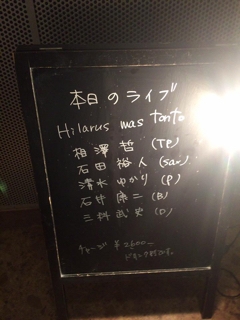 本日のライブ
Hilarus mas tonto
相澤 哲 (TP)
石田 裕人 (sax)
清水 ゆかり (P)
石井 康二 (B)
三科 武史 (D)
チャージ ¥2600-